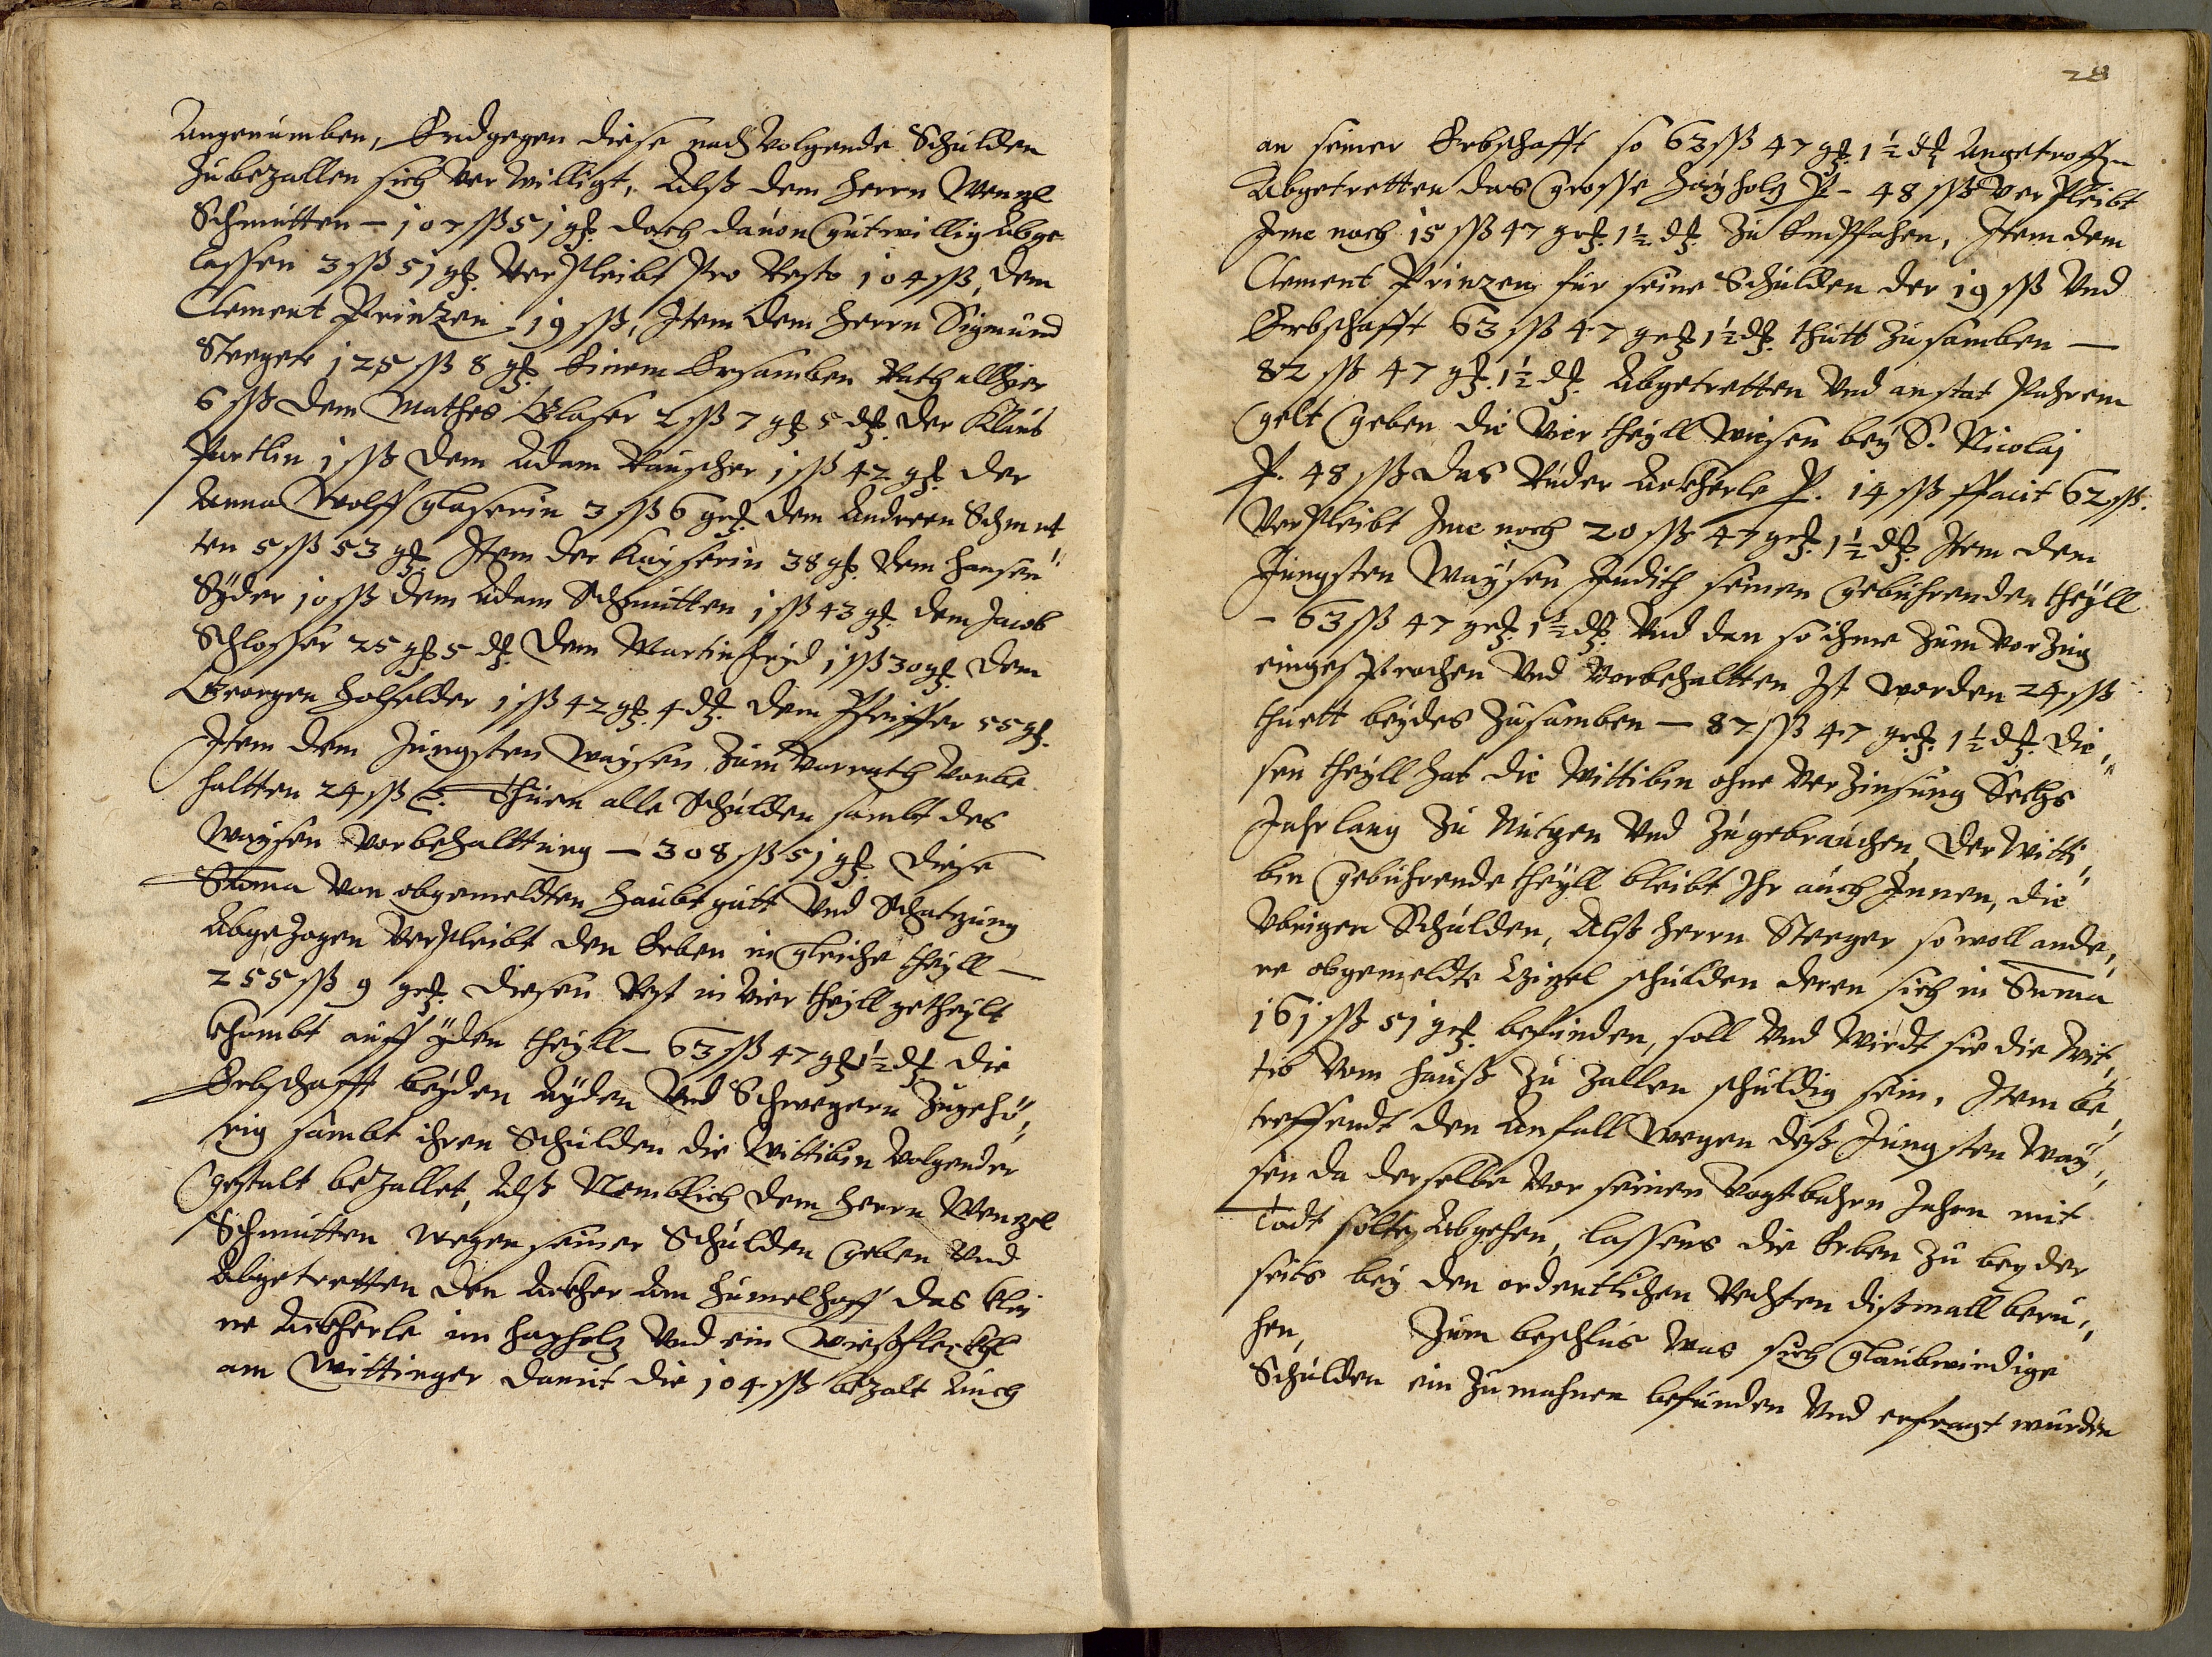 Angenumben, Endgegen diese nachvolgende Schulden
zubezallen sich verwilligt, Alß dem Herrn Wenzl
Schmutten – 107 ßß 51 gß. doch dauon guetwillig Abge
lassen 3 ßß 51 gß. Verpleibt Pro Resto 104 ßß, dem
Clement Prinzen 19 ßß, Item dem Herrn Sigmund
Steeger 125 ßß 8 gß. Einem Ersamben Rath allhier
6 ßß dem Mathes Glaser 2 ßß 7 gß 5 dß. der Klaus
Partlin 1 ßß dem Adam Rauscher 1 ßß 42 gß. der
Anna Wolff Glaserin 3 ßß 6 grß dem Anderen Schmut
ten 5 ßß 53 gß. Item der Kayserin 38 gß. dem Hansen
Syder 10 ßß dem Adam Schmutten 1 ßß 43 gß. dem Jacob
Schlosser 25 gß 5 dß. dem Martin 1 ßß 30 gß. dem
Georgen Holfelder 1 ßß 42 gß. 4 dß. dem Pfeiffer 55 gß.
Item dem Jungsten Waysen zum Vorrath Vorbe
haltten 24 ßß Thuen alle Schulden sambt des
Waysen Vorbehalttung – 308 ßß 51 gß. diese
Suma von obgemeldten Haubtgutt Vnd Schatzung
Abgezogen Verpleibt den Erben in gleiche theyll –
255 ßß 9 grß. diesen Rest in Vier theyll getheylt
khombt auff yden theyll – 63 ßß 47 gß 1½ dß die
Erbschafft beyden Ayden Vnd Schwegern Zugehö„
rig sambt ihren Schulden die Wittibin Volgender
gestalt bezallet, Alß Nemblich dem Herrn Wenzel
Schmutten wegen seiner Schulden geben Vnd
Abgetretten den Ackher am Humelhoff das klei
ne Ackherle im Hayholz Vnd ein Wießfleckhl
am Wittinger damit die 104 ßß bezalt Auch
28
an seiner Erbschafft so 63 ßß 47 gß 1½ dß Angetroffen
Abgetretten das Grosse Hayholz P – 48 ßß Verpleibt
Jme noch 15 ßß 47 grß. 1½ dß. Zu Empfahen, Item dem
Clement Prinzen für seine Schulden der 19 ßß Vnd
Erbschafft 63 ßß 47 grß 1½ dß. thutt zusamben –
82 ßß 47 gß. 1½ dß. Abgetretten Vnd anstat Pahrem
gelt geben die Vier theyll Wiesen bey S. Nicolaj
P. 48 ßß das Ackherle P. 14 ßß ffacit 62 ßß.
Verpleibt Jme noch 20 ßß 47 grß. 1½ dß. Item dem
Jungsten Waysen Judith seinen gebührenden theyll
– 63 ßß 47 grß. 1½ dß. Vnd dan so ihme zum Vorzug
eingesprochen Vnd Vorbehaltten Ist worden 24 ßß
thuett beydes zusamben – 87 ßß 47 grß. 1½ dß. die„
sen theyll hat die Wittibin ohne Verzinsung Sechs
Jahrlang zu Nutzen Vnd zugebrauchen, der Witti„
bin gebührende theyll bleibt Ihr auch Innen, die
Vbrigen Schulden, Alß Herrn Steeger so woll ande„
re obgemeldte schulden deren sich in Suma
161 ßß 51 grß. befunden, soll Vnd Wirdt sie die Wit„
tib Vom Hauß zu zallen schuldig sein. Item be„
treffendt den Anfall wegen deß Jungsten Way„
sen da derselbe Vor seinen Vogtbahrn Jahren mit
Todt solte Abgehen, lassens die Erben zu beyder
seits bey den ordentlichen Rechten dißmall beru„
hen, Zum beschlus was sich glaubwirdige
Schulden ein zumahnen befunden Vnd erfragt wurden